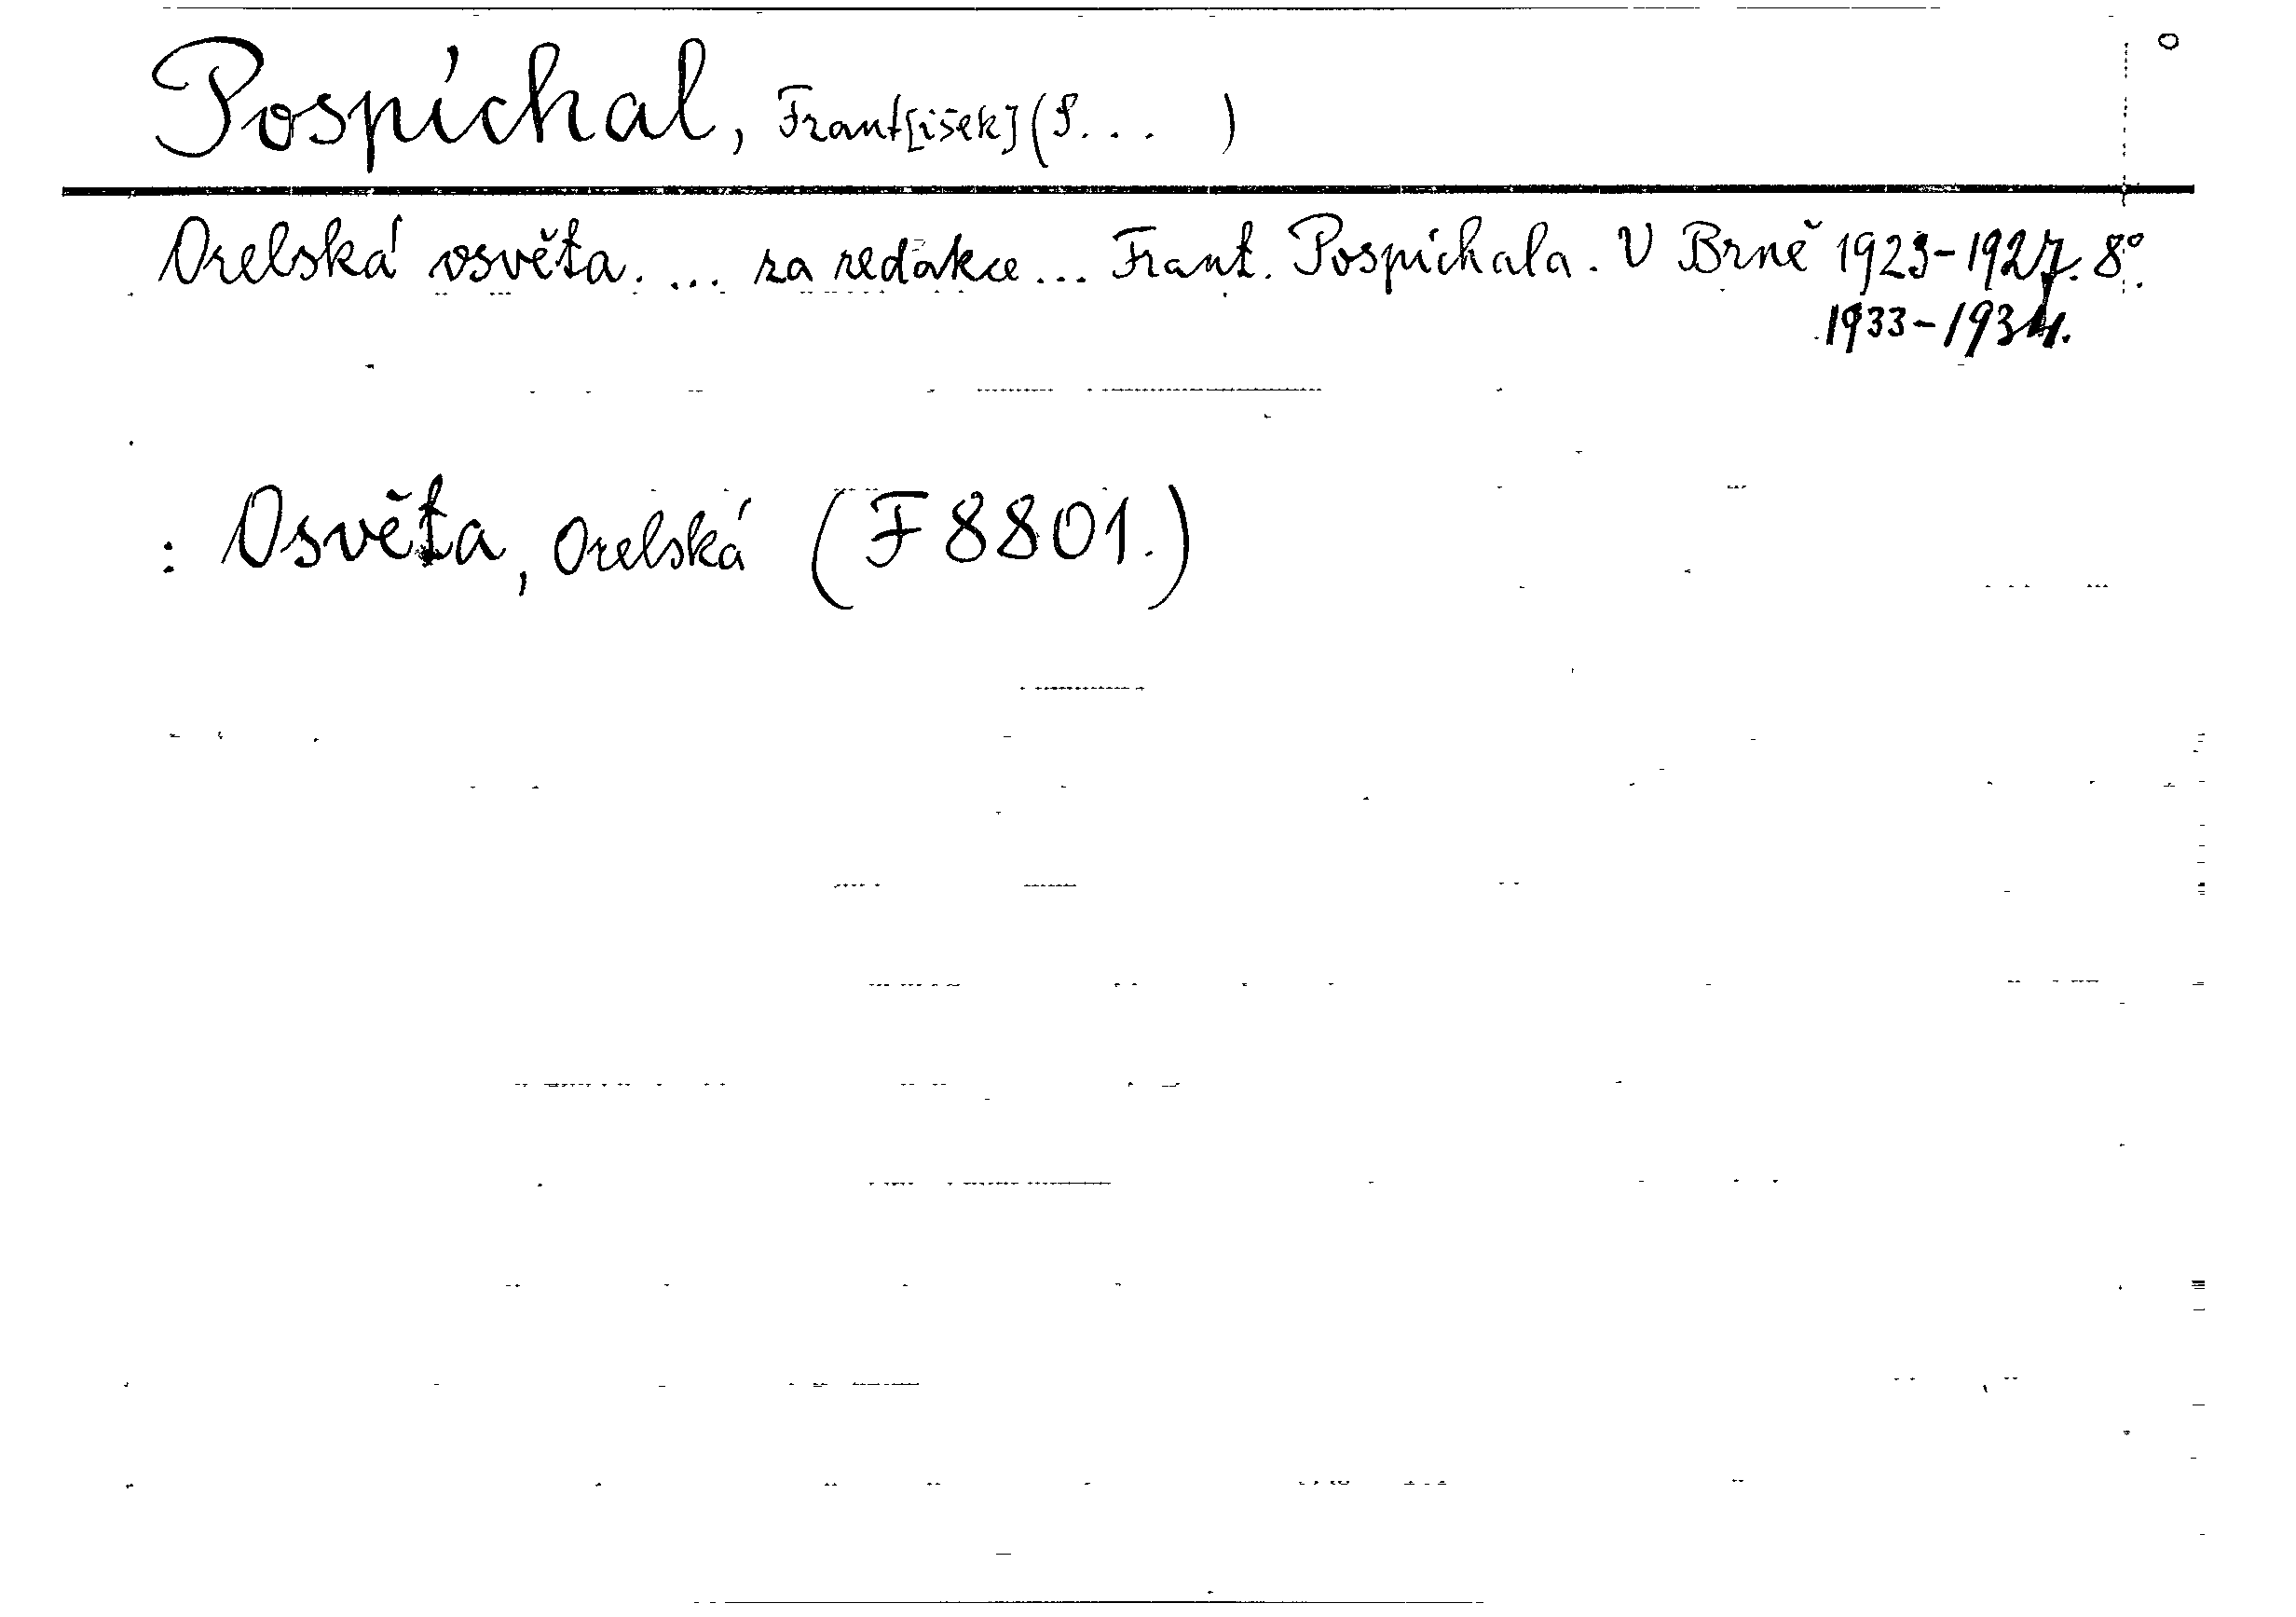 Pospíchal, Frant[išek] (P... )
Orelská osvěta. ... za redakce ... Frant. Pospíchala. V Brně 1923-1927. 8°.
1933-1934.
: Osvěta, Orelská (F 8801.)